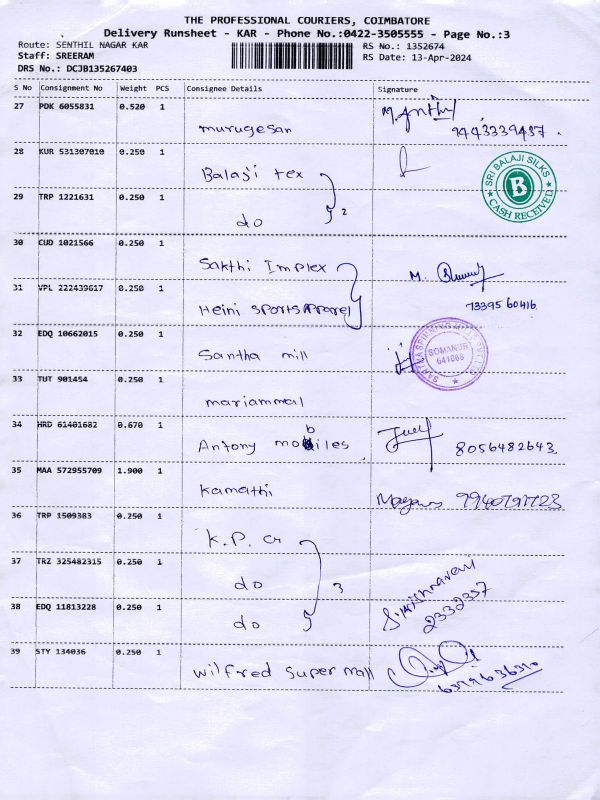 THE PROFESSIONAL COURIERS, COIMBATORE
Delivery Runsheet - KAR - Phone No.:0422-3505555 - Page No.:3
Route: SENTHIL NAGAR KAR
RS No.: 1352674
Staff: SREERAM
RS Date: 13-Apr-2024
DRS No.: DCJB135267403
S No Consignment No Weight PCS Consignee Details Signature
27 PDK 6055831 0.520 1
murugesan 9443339487.
28 KUR 531307010 0.250 1
Balaji tex
SRI BALAJI SILKS
B
CASH RECEIVED
29 TRP 1221631 0.250 1
do 2
30 CUD 1021566 0.250 1
Sakthi Implex M.
31 VPL 222439617 0.250 1
Heini sports Apparel 73395 60416
32 EDQ 10662015 0.250 1
Santha mill
SOMANUR
641668
33 TUT 901454 0.250 1
mariammal
34 HRD 61401682 0.670 1
Antony mobiles 8056482643.
35 MAA 572955709 1.900 1
Kamathi
36 TRP 1509383 0.250 1
K.P. Cr
37 TRZ 325482315 0.250 1
do 3
38 EDQ 11813228 0.250 1
do 2332357
39 STY 134036 0.250 1
Wilfred super mall